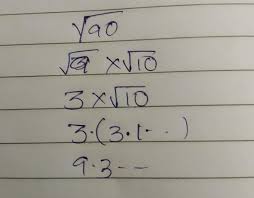 √90
√9 ×√10
3 ×√10
3·(3·1··)
9·3--